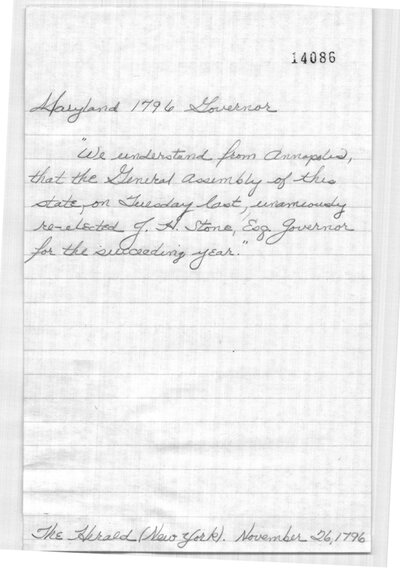 14086
Maryland 1796 Governor
"We understand from Annapolis,
that the General Assembly of this
state, on Tuesday last, unamiously
re-elected J. H. Stone, Esq Governor
for the succeeding year."
The Herald (New York). November 26, 1796